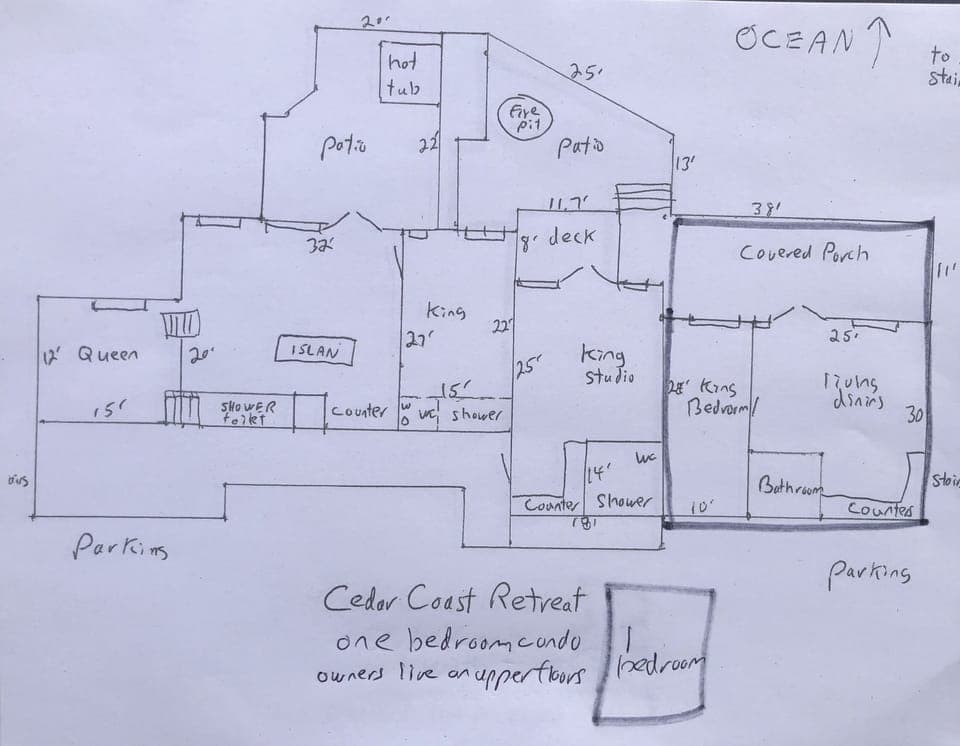 20'
OCEAN
to
hot
tub
25'
Fire
pit
Patio
22'
Patio
13'
11.7'
38'
32'
8' deck
Covered Porch
11'
King
22'
27'
25'
12' Queen
20'
ISLAN
King
Studio
King
Bedroom
Living
dining
30
15'
15'
SHOWER
toilet
Counter
WC
Shower
WC
14'
Counter
Shower
18'
10'
Bathroom
Counter
Parking
Parking
Cedar Coast Retreat
one bedroom condo
owners live on upper floors
1
bedroom